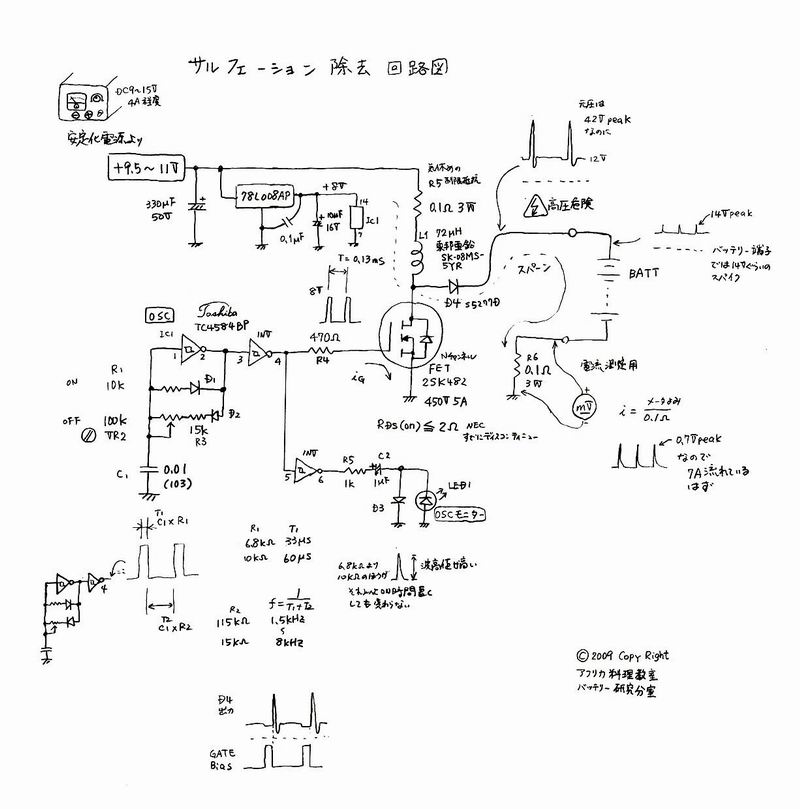 サルフェーション 除去 回路図
DC9~15V
4A程度
安定化電源より
+9.5~11V
330μF
50V
78L008AP
+8V
0.1μF
10μF
16V
14
IC1
7
R5
0.1Ω 3W
L1
72μH
東邦亜鉛
SK-08MS-
5YR
元圧は
42V peak
なのに
12V
高圧危険
14V peak
バッテリー端子
では14Vぐらいの
スパイク
スパーン
BATT
D4 S5277D
T=0.13ms
8V
OSC
Toshiba
TC4584BP
IC1
1
2
INV
3
4
470Ω
R4
iG
Nチャンネル
FET
2SK482
450V 5A
RDS(on)≦2Ω NEC
すでにディスコンティニュー
R6
0.1Ω
3W
電流測定用
+
mV
-
i=メータよみ/0.1Ω
0.7V peak
なので
7A流れている
はず
ON
R1
10k
D1
OFF
100k
VR2
15k
R3
D2
C1
0.01
(103)
INV
5
6
R5
1k
C2
1μF
D3
LED1
OSCモニター
T1
C1×R1
T2
C1×R2
4
R1 T1
6.8kΩ 33μs
10kΩ 60μs
R2 f=1/(T1+T2)
115kΩ 1.5kHz
~
15kΩ 8kHz
6.8kΩより
10kΩのほうが
波高値が高い
それ以上ON時間長く
しても変わらない
D4
出力
GATE
Bias
© 2009 Copy Right
アフリカ料理教室
バッテリー研究分室